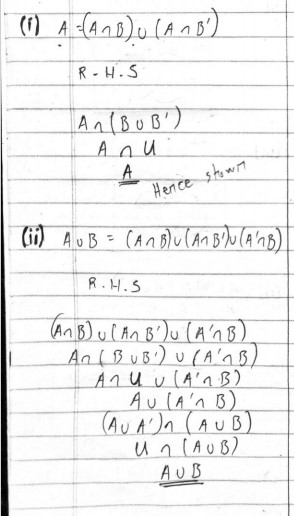 (i) A = (A∩B) ∪ (A∩B')
R-H.S
A∩(B∪B')
A ∩ U
A
Hence shown
(ii) A∪B = (A∩B)∪(A∩B')∪(A'∩B)
R.H.S
(A∩B)∪(A∩B')∪(A'∩B)
A∩(B∪B') ∪ (A'∩B)
A∩U ∪ (A'∩B)
A∪(A'∩B)
(A∪A')∩(A∪B)
U ∩ (A∪B)
A∪B